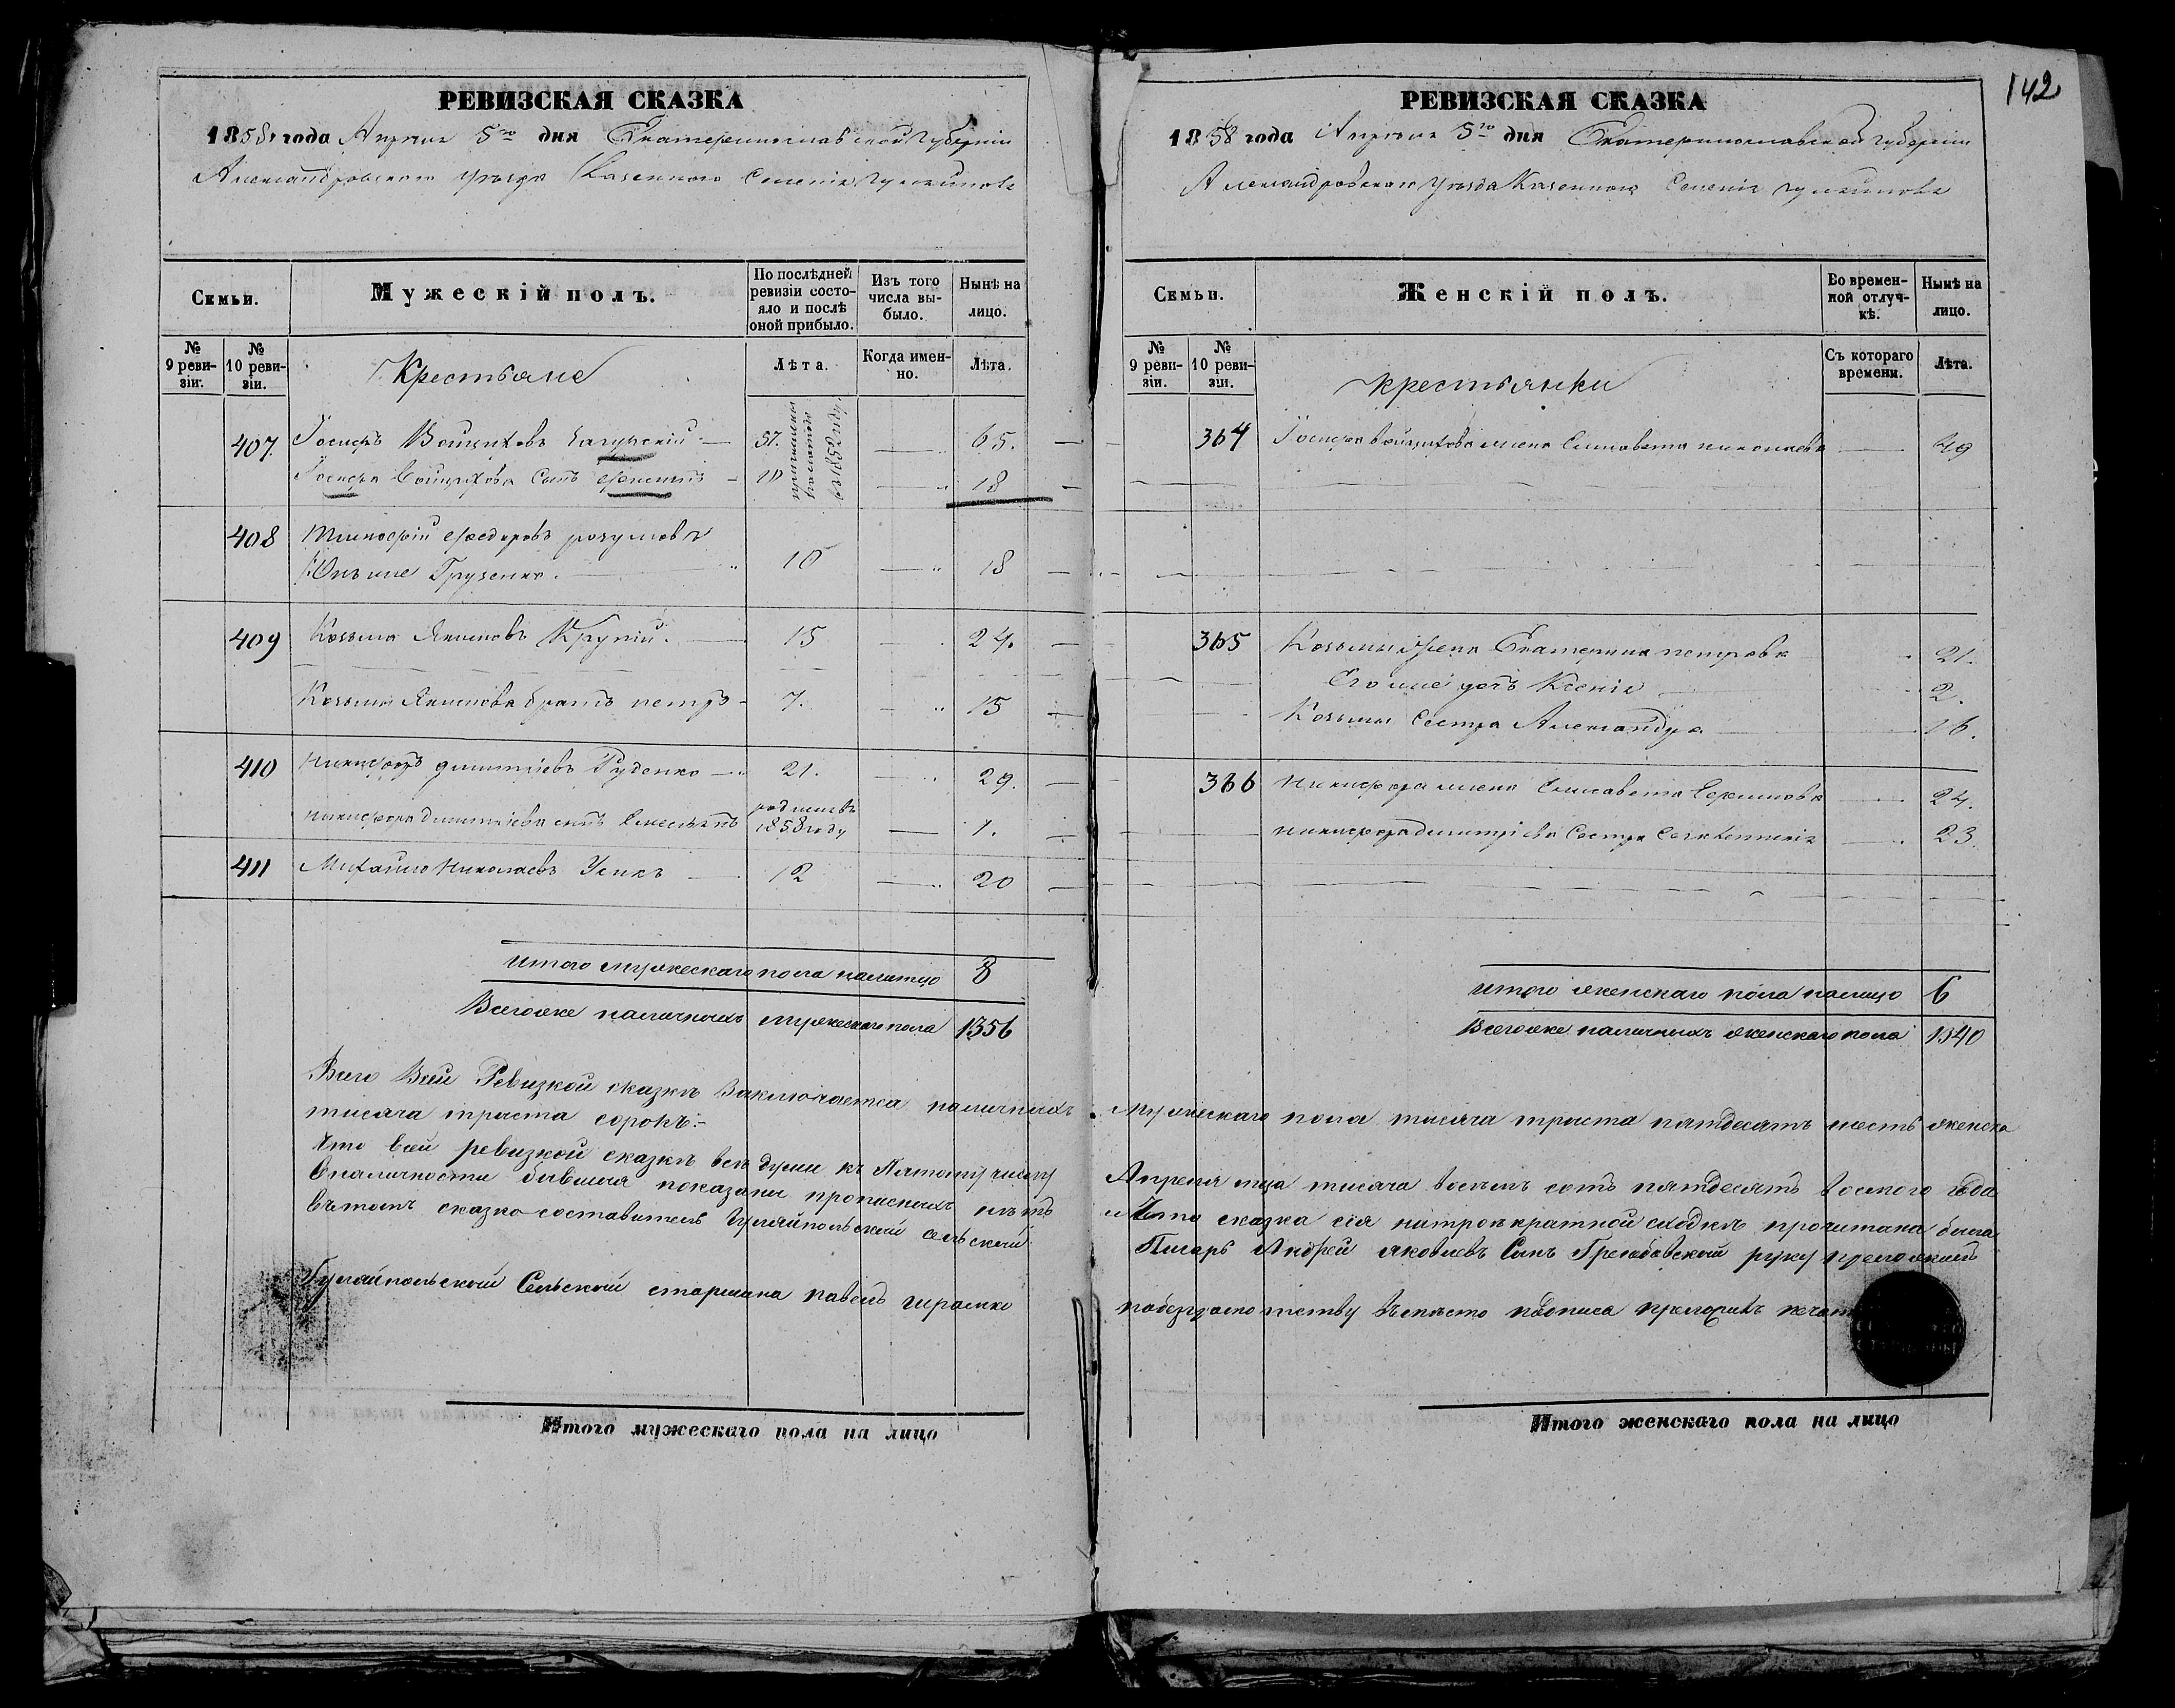 РЕВИЗСКАЯ СКАЗКА
1858 года Апреля 5го дня Екатеринославской Губерніи
Александровского уѣзда Казенного Селенія Гуляйполя
Семьи.
Мужескій полъ.
По послѣдней ревизіи состояло и послѣ оной прибыло.
Изъ того числа выбыло.
Нынѣ на лицо.
№ 9 ревизіи.
№ 10 ревизіи.
Крестьяне
Лѣта.
Когда именно.
Лѣта.
407. Іосифъ Войцеховъ Загурскій 57. 65.
Іосифа Войцехова Сынъ 10 18
въ 1852 году
408 Тимофѣй Федоровъ разумовъ
Онъ же Грузенко. 10 18
409 Козьма Якимовъ Крупій. 15 24.
Козьмы Якимова братъ петръ 7. 15
410 Никифоръ дмитріевъ Руденко 21. 29.
никифора дмитріева сынъ родился въ 1858 году 1.
411 Михайло Николаевъ Усикъ 12 20
итого мужескаго пола налицо 8
Всего же наличныхъ мужескаго пола 1356
Всего Всей Ревизкой сказкѣ Заключается наличныхъ
тисяча триста сорокъ:-
Что всей ревизкой сказкѣ всѣ души къ Пятому числу
Оналичности бывшія показаны прописныхъ нѣтъ
Вътомъ сказко-составитель Гуляйпольский сельский
Гуляйпольской Сельской старшина павелъ
Итого мужескаго пола на лицо
142
РЕВИЗСКАЯ СКАЗКА
1858 года Апрѣля 5го дня Екатеринославской Губерніи
Александровскаго Уѣзда Казенного Селенія гуляйполя
Семьи.
Женскій полъ.
Во временной отлучкѣ.
Нынѣ на лицо.
№ 9 ревизіи.
№ 10 ревизіи.
крестьянки
Съ котораго времени.
Лѣта.
364 Іосифа войцехова жена Елисавета николаева 49
365 Козьмы жена Екатерина петрова 21.
Его же дочь Ксенія 2.
Козьмы Сестра Александра 16.
366 Никифора жена Елисавета Ефимова 24.
никифора дмитріева Сестра 23.
итого женскаго пола налицо 6
Всего же наличныхъ женскаго пола 1340
Мужескаго пола тисяча триста пятдесятъ шесть женска
Апреля мца тисяча восемъ сотъ пятдесятъ восмого года
и что сказка сія натроекратной сходкѣ прочитана была
Писарь Андрей яковлевъ Сынъ руку приложилъ
побезграмотству въместо подписа приложилъ печать
Итого женскаго пола на лицо